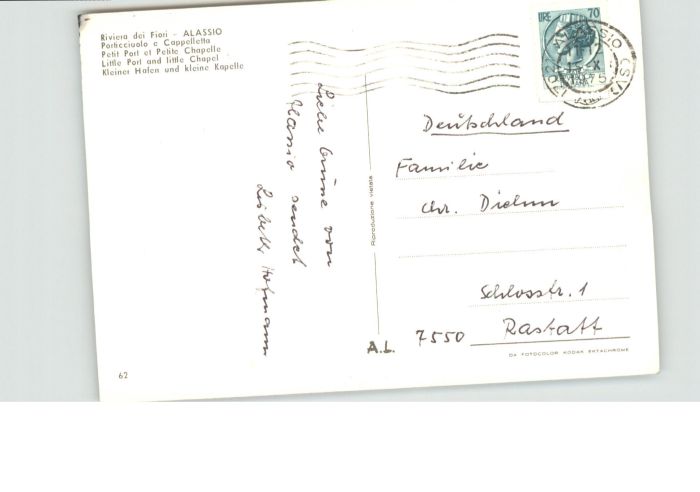 Riviera dei Fiori - ALASSIO
Porticciuolo e Cappelletta
Petit Port et Petite Chapelle
Little Port and little Chapel
Kleiner Hafen und kleine Kapelle
LIRE 70
ALASSIO (SV)
Liebe Grüsse von
Alassio sendet
Hofmann
Riproduzione vietata
Deutschland
Familie
Chr. Diehm
Schlosstr. 1
7550 Rastatt
A.L.
DA FOTOCOLOR KODAK EKTACHROME
62